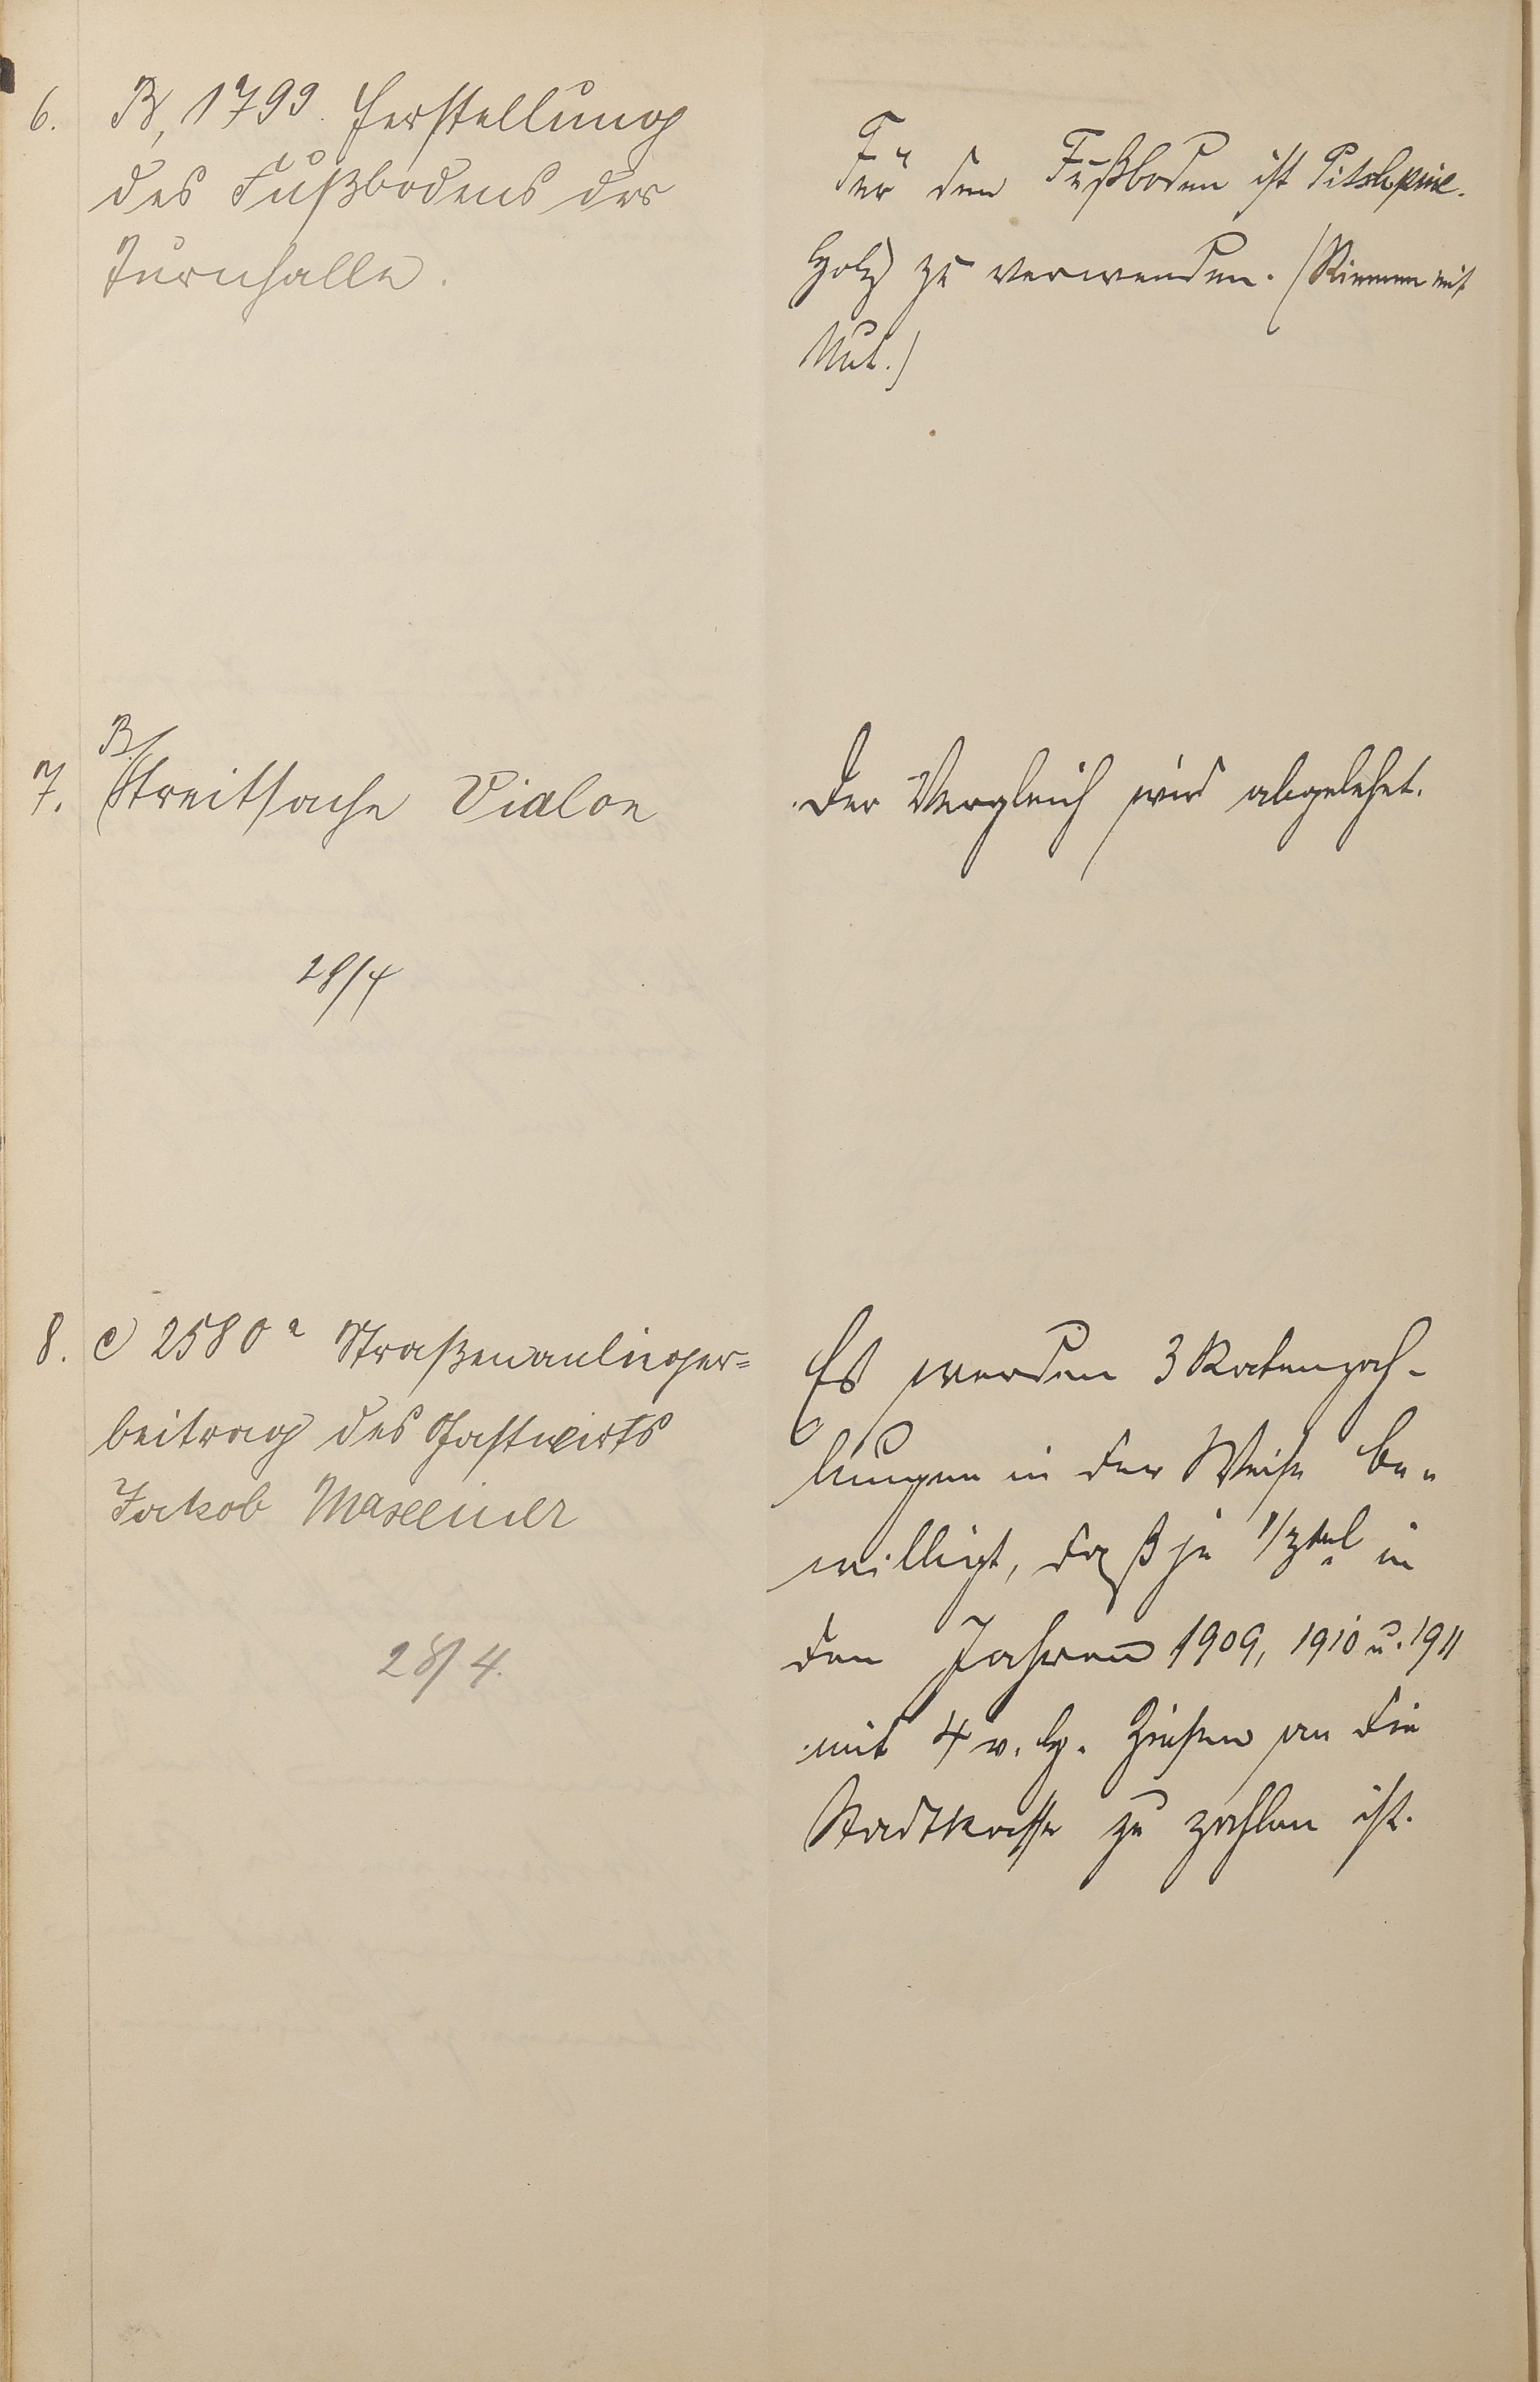 6. B, 1799. Herstellung
des Fußbodens der
Turnhalle.
Für den Fußboden ist Pitchpine-
Holz zu verwenden. (Riemen mit
Nut.)
B.
7. Streitsache Vialon
28/4
Der Vergleich wird abgelehnt.
8. C 2580a Straßenanlieger=
beitrag des Gastwirts
Jakob
28/4.
Es werden 3 Ratenzah-
lungen in der Weise be-
willigt, daß je 1/3tel in
den Jahren 1909, 1910 u. 1911
mit 4 v. H. Zinsen an die
Stadtkasse zu zahlen ist.